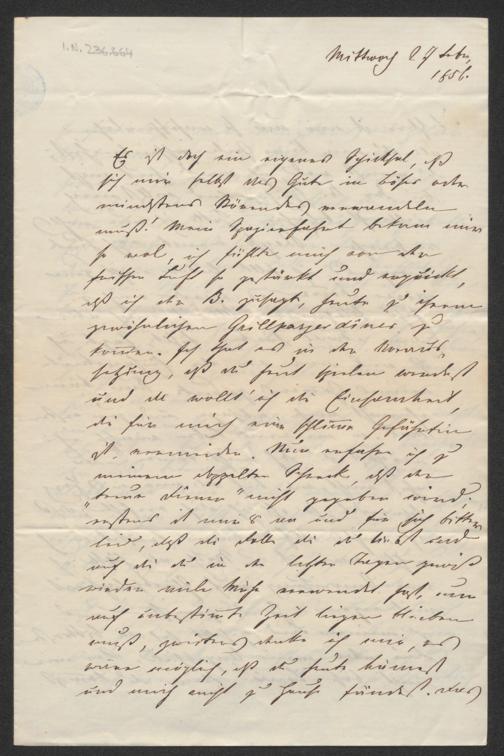 I.N. 236.664
Mittwoch 27 Febr,
1856.
Es ist doch ein eigenes Schicksal, daß
sich mir selbst das Gute in Böses oder
mindestens Störendes verwandeln
muß! Meine Spazierfahrt bekam mir
so wol, ich fühlte mich von der
frischen Luft so gestärkt und erquickt,
daß ich der B. zusagte, heute zu ihrem
gewöhnlichen Grillparzerdiner, zu
kommen. Ich that es in der Voraus-
setzung, daß du heut spielen werdest
und da wollt' ich die Einsamkeit,
die für mich eine schlimme Gefährtin
ist, vermeiden. Nun erfahre ich zu
meinem doppelten Schreck, daß der
"treue Diener" nicht gegeben wird;
erstens ist mir's an und für sich bitter
leid, daß die Rolle die du liebst und
auf die du in den letzten Tagen gewiß
wieder viele Mühe verwendet hast, nun
auf unbestimmte Zeit liegen bleiben
muß, zweitens denke ich mir, es
wäre möglich, daß du heute kämest
und mich nicht zu Hause fändest. Das